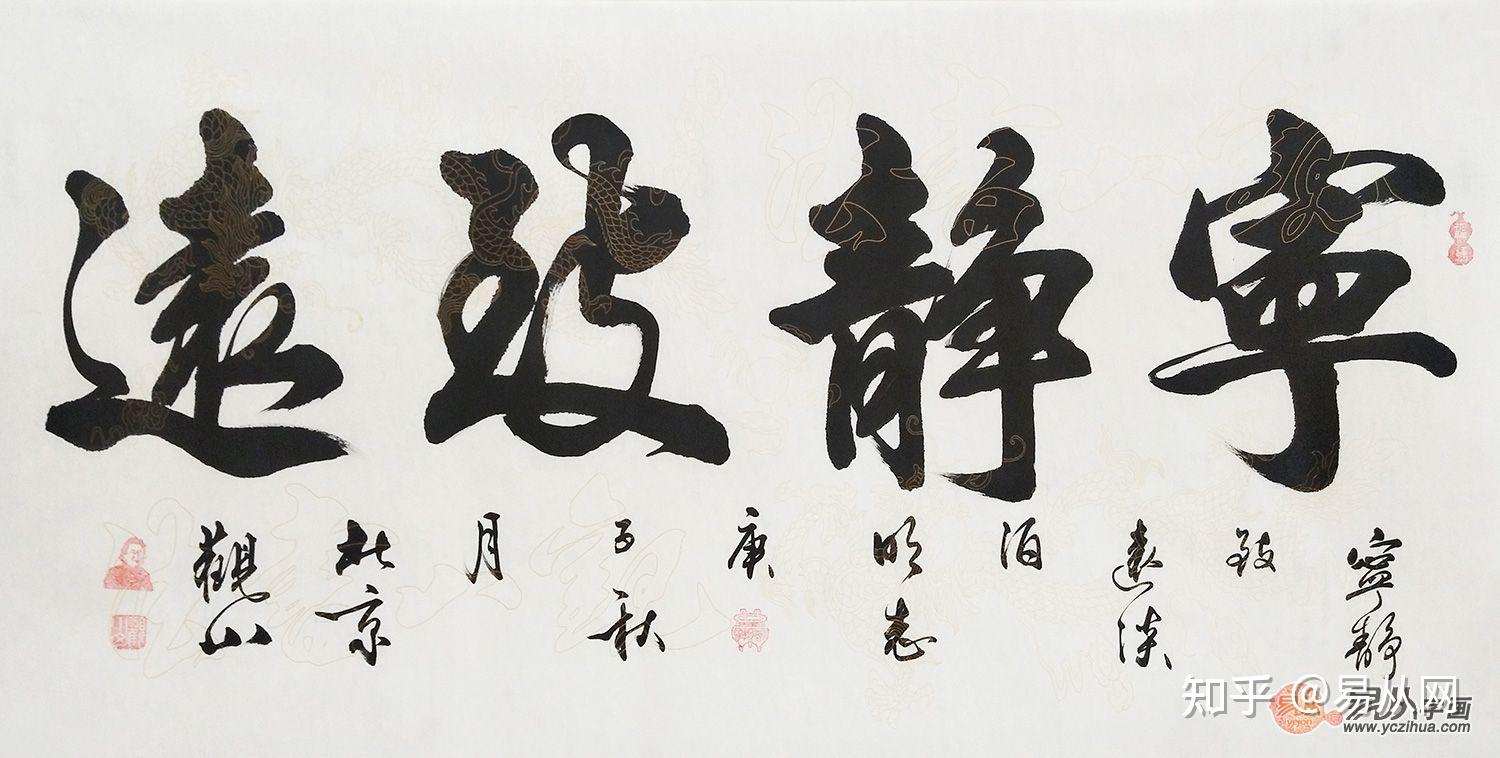 寧靜致遠
寧靜
致
遠淡
泊
明志
庚
子秋
月
北京
觀山
知乎 @易从网
易从字画
www.yczihua.com